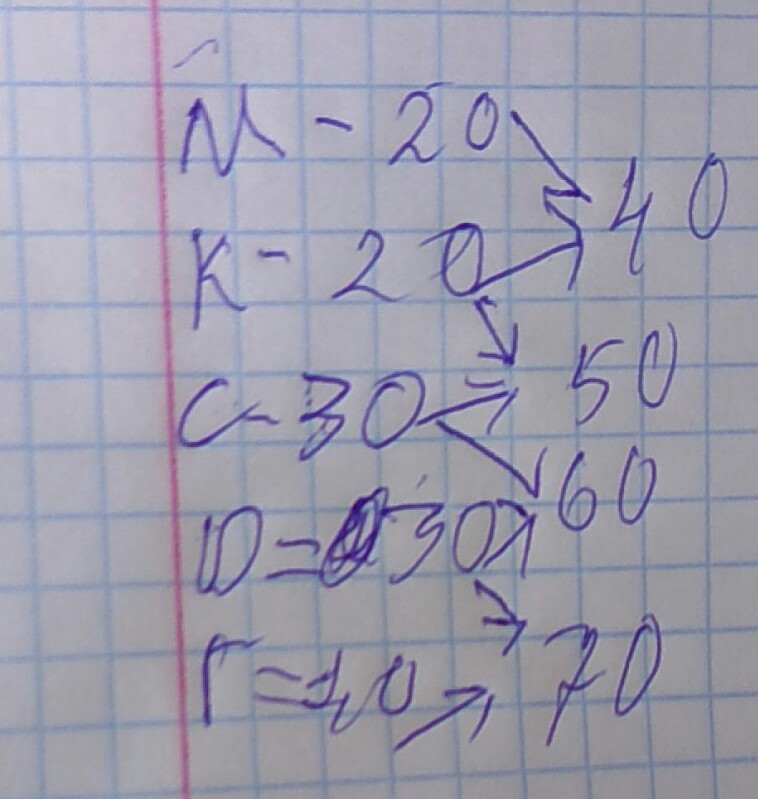 М - 20
40
К - 20
50
С - 30
60
Ю = 30
70
Г = 40